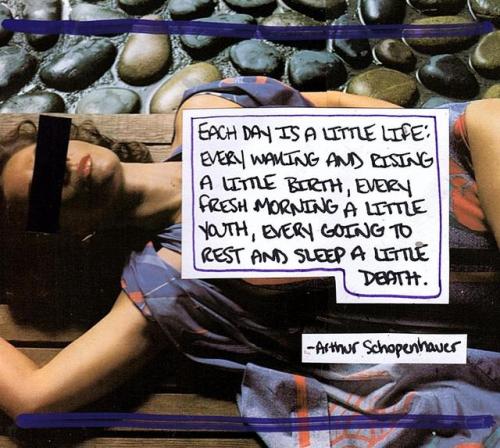 EACH DAY IS A LITTLE LIFE:
EVERY WAKING AND RISING
A LITTLE BIRTH, EVERY
FRESH MORNING A LITTLE
YOUTH, EVERY GOING TO
REST AND SLEEP A LITTLE
DEATH.
-Arthur Schopenhauer